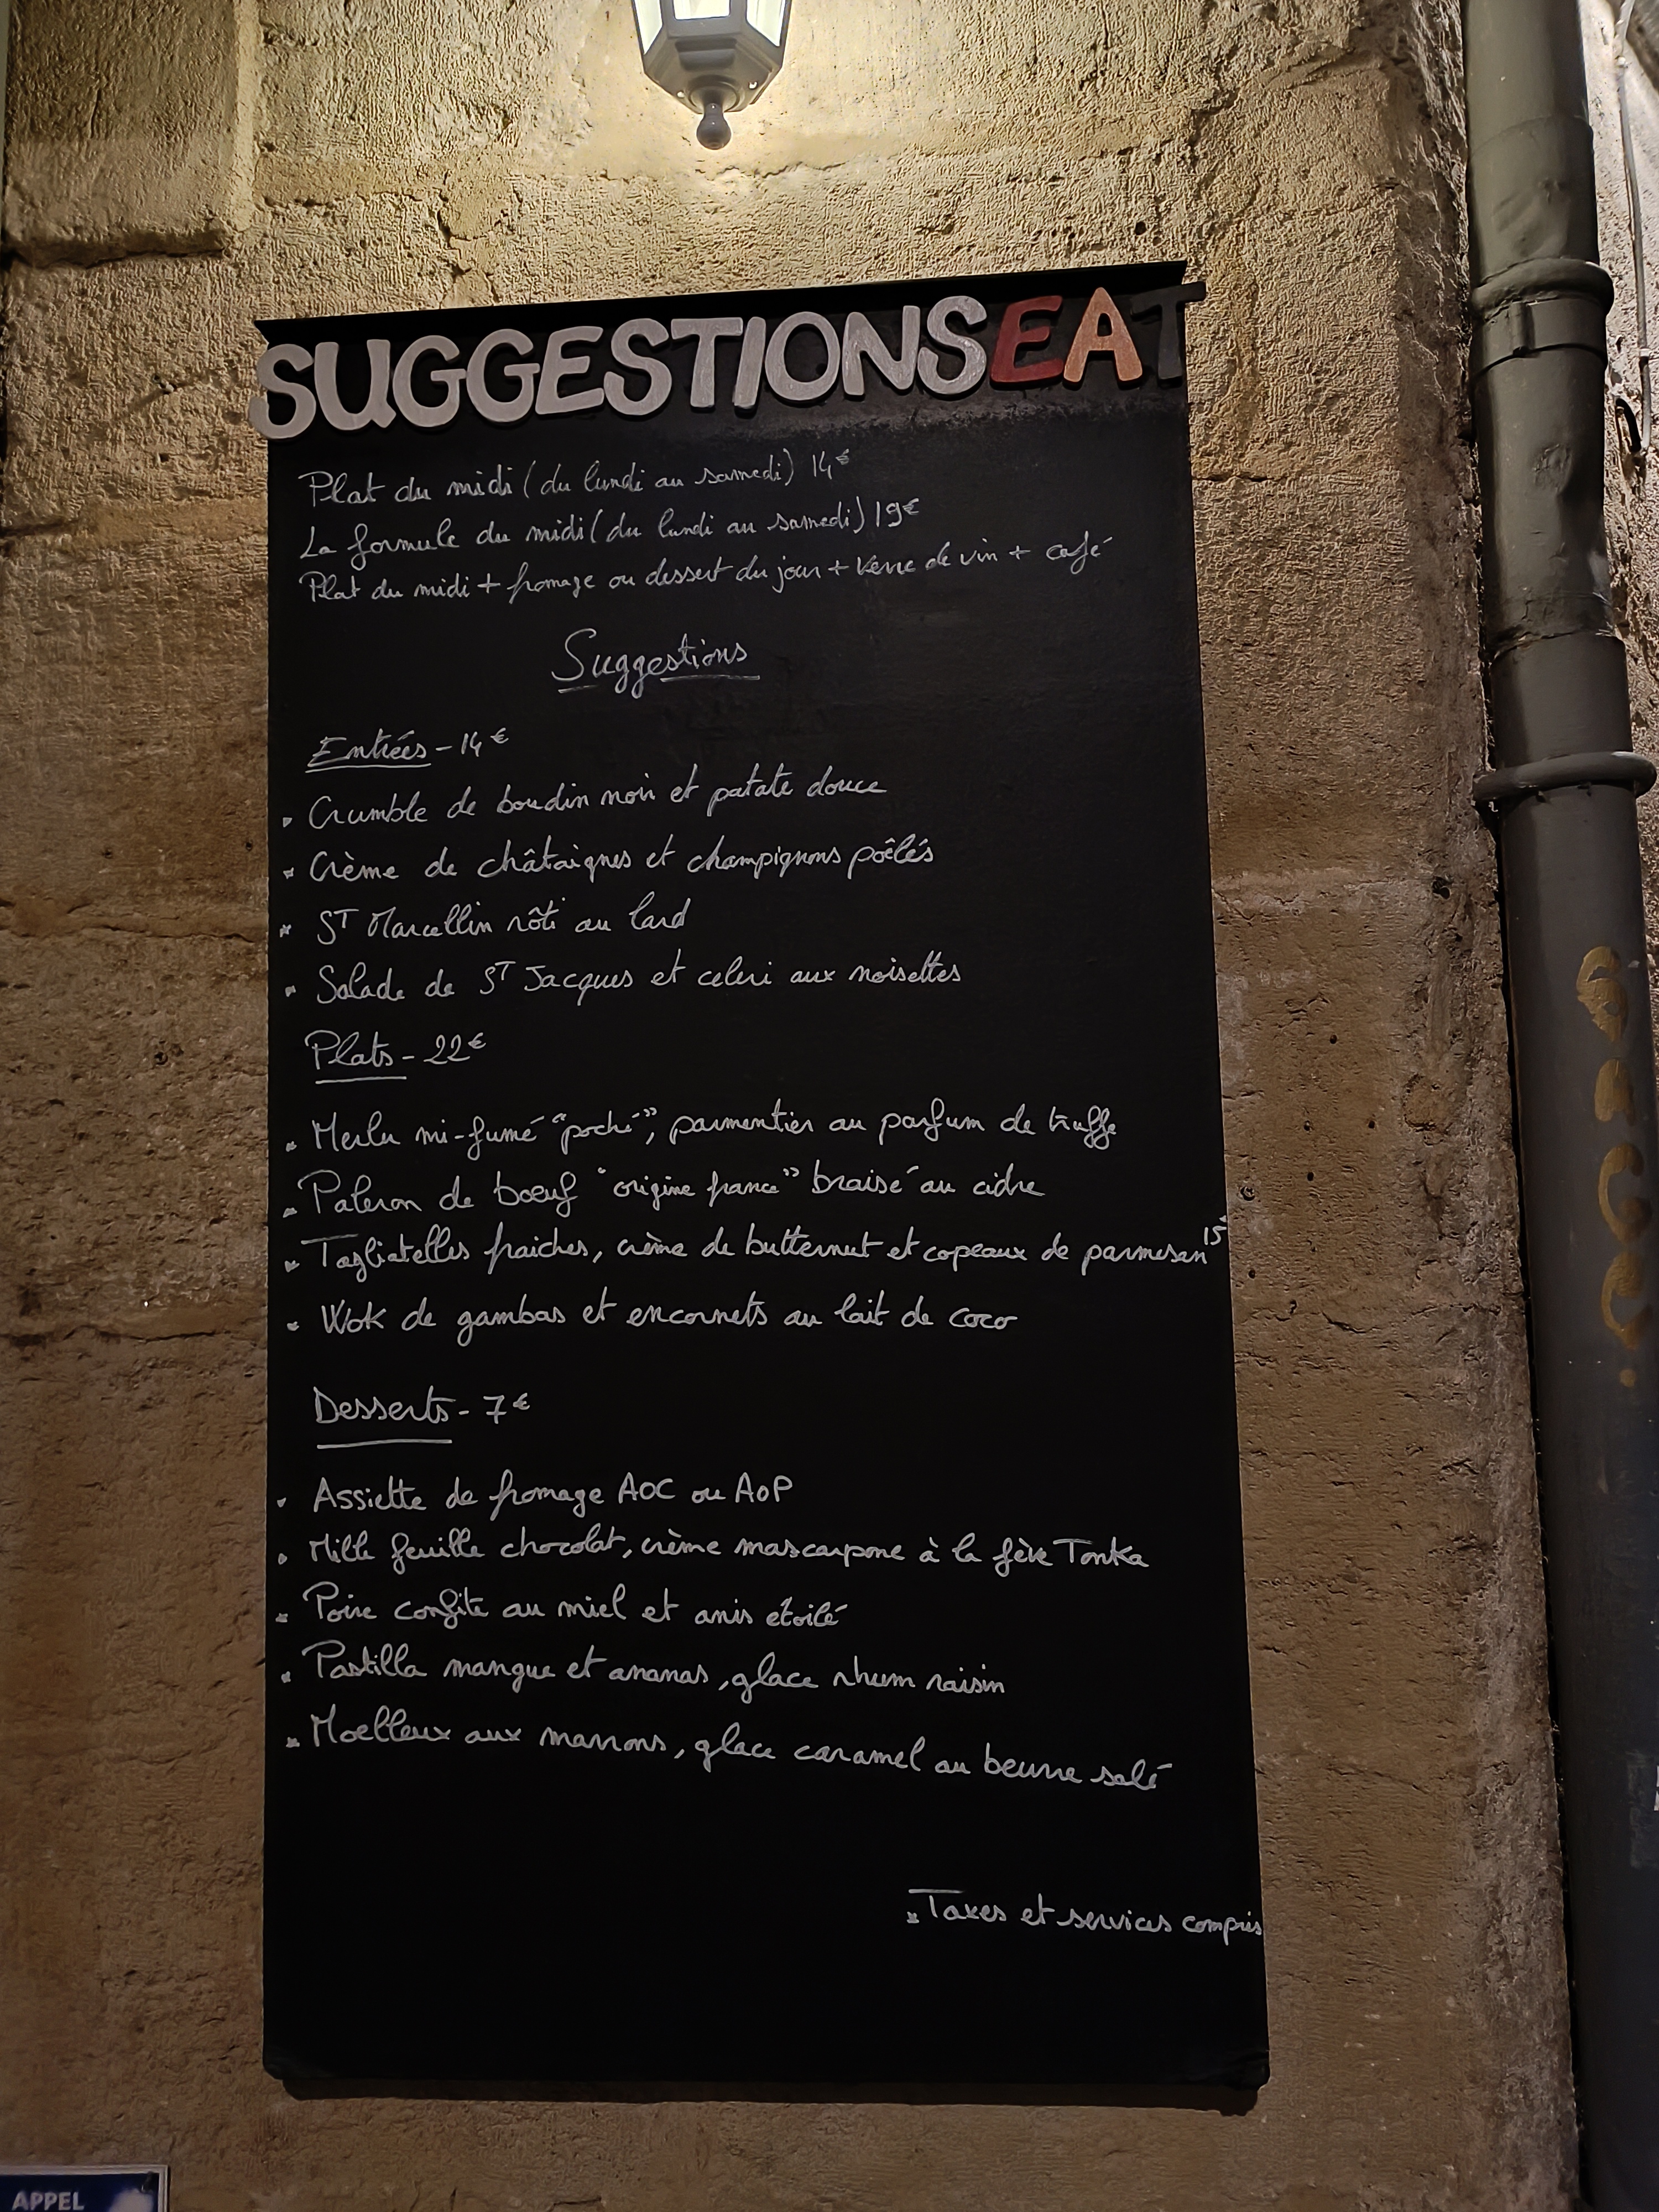 SUGGESTIONS EAT
Plat du midi (du lundi au samedi) 14€
La formule du midi (du lundi au samedi) 19€
Plat du midi + fromage ou dessert du jour + verre de vin + café
Suggestions
Entrées - 14€
Crumble de boudin noir et patate douce
Crème de châtaignes et champignons poêlés
ST Marcellin rôti au lard
Salade de ST Jacques et celeri aux noisettes
Plats - 22€
Merlu mi-fumé "poché", parmentier au parfum de truffe
Paleron de boeuf "origine france" braisé au cidre
Tagliatelles fraiches, crème de butternut et copeaux de parmesan 15€
Wok de gambas et encornets au lait de coco
Desserts - 7€
Assiette de fromage AOC ou AOP
Mille feuille chocolat, crème mascarpone à la fève Tonka
Poire confite au miel et anis étoilé
Pastilla mangue et ananas, glace rhum raisin
Moelleux aux marrons, glace caramel au beurre salé
Taxes et services compris
APPEL